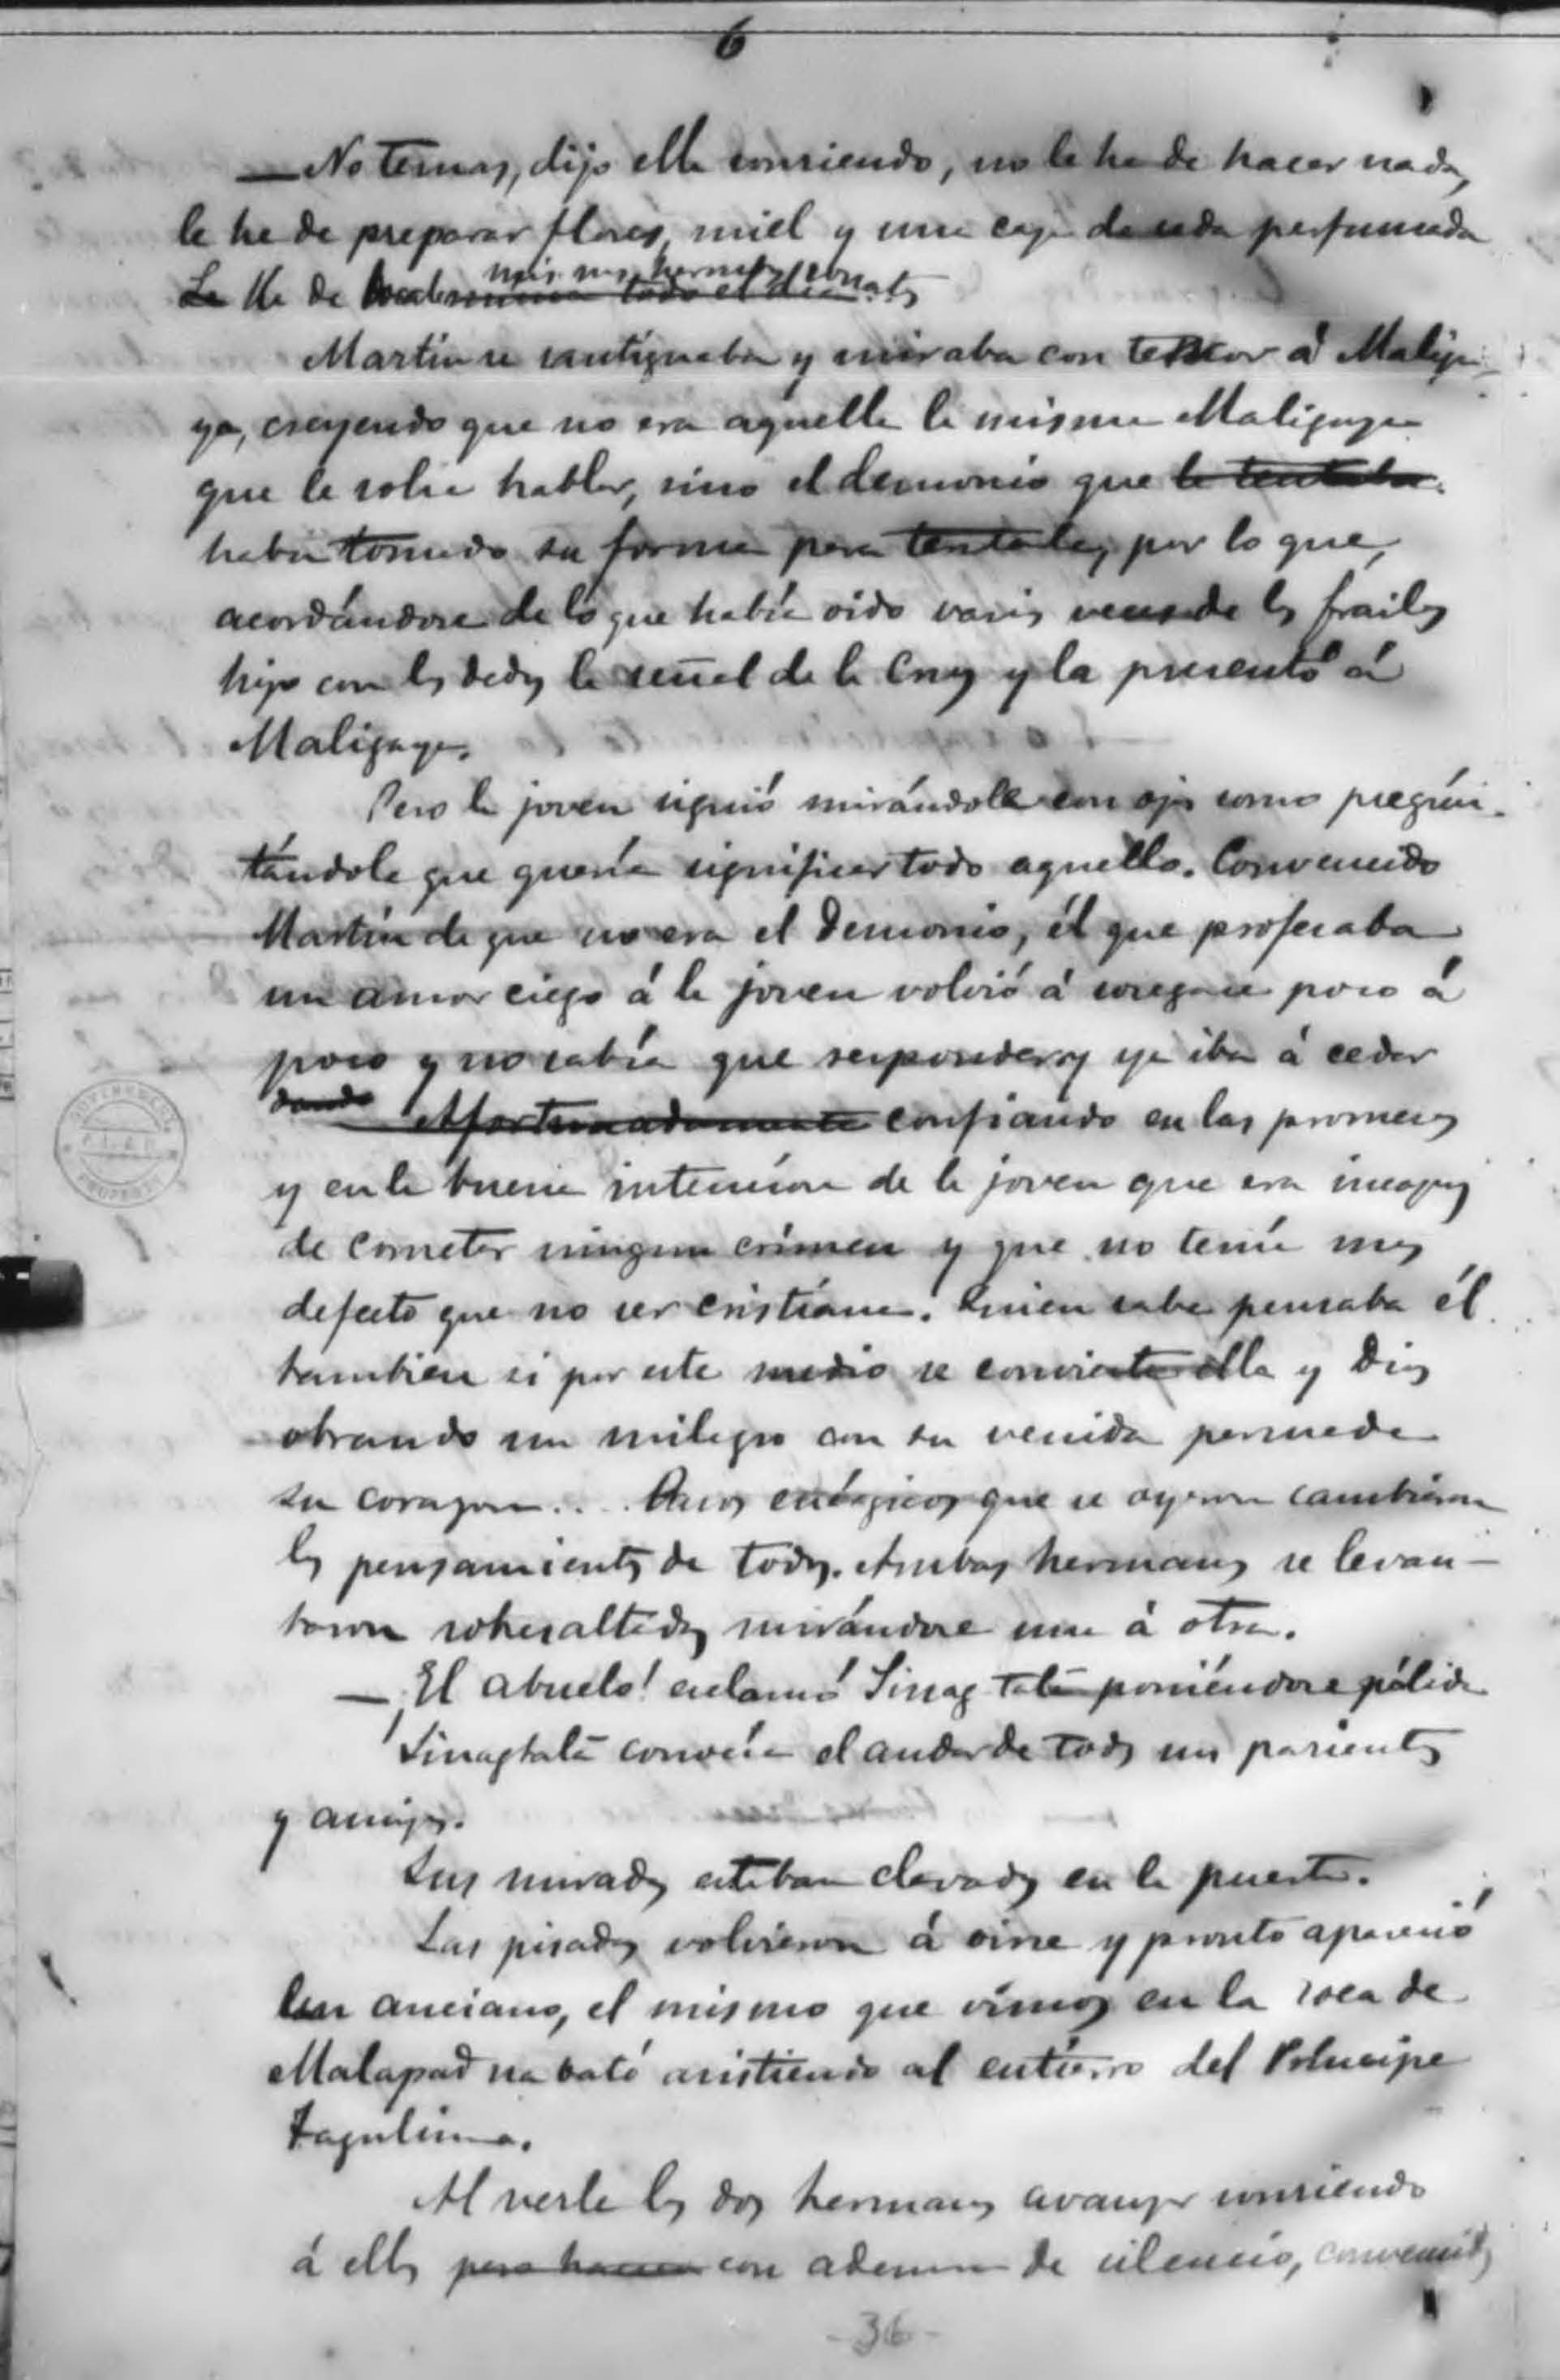 6
—No temas, dijo ella sonriendo, no le he de hacer nada,
le he de preparar flores, miel y una caja de seda perfumada
Le he de mis mas hermosos
Martin se santiguaba y miraba con terror á Maliga-
ya, creyendo que no era aquella la misma Maligaya
que le solia hablar, sino el demonio que le tentaba.
habia tomado su forma para tentarle, por lo que,
acordándose de lo que había oido varias veces de los frailes
hizo con los dedos la señal de la Cruz y la presentó á
Maligaya.
Pero la joven siguió mirándole con ojos como pregún-
tándole que quería significar todo aquello. Convencido
Martin de que no era el Demonio, él que profesaba
un amor ciego á la joven volvió á sosegarse poco á
poco y no sabía que responder y ya iba á ceder
dando Afortunadamente confiando en las promesas
y en la buena intencion de la joven que era incapaz
de cometer ningun crímen y que no tenía mas
defecto que no ser cristiana. Quien sabe pensaba él
tambien si por este medio se convierte ella y Dios
obrando un milagro con su venida persuade
su corazon... Pasos enérgicos que se oyeron cambiaron
los pensamientos de todos. Ambas hermanas se levan-
taron sobresaltadas mirándose una á otra.
—¡El abuelo! exclamó Sinag-talà poniéndose pálida
Sinagtalà conocía el andar de todos sus parientes
y amigos.
Sus miradas estaban clavadas en la puerta.
Las pisadas volvieron á oirse y pronto apareció
un anciano, el mismo que vimos en la roca de
Malapad na bató asistiendo al entierro del Príncipe
Tagulima.
Al verle los dos hermanos avanzar sonriendo
á ellos para hacer con ademan de silencio, convencidos
-36-